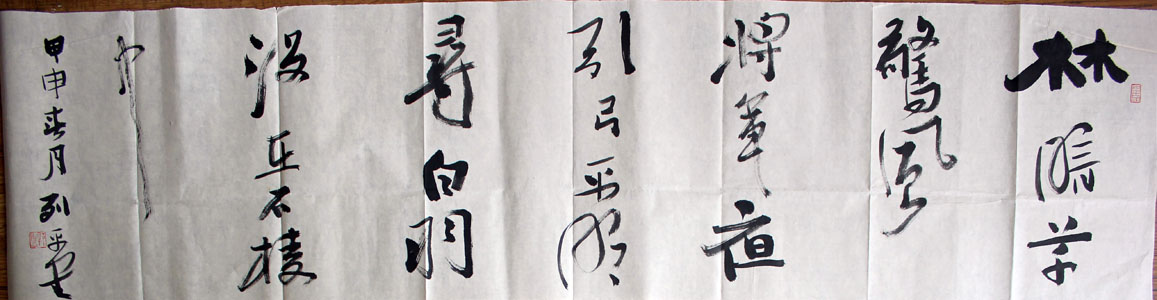 林暗草
驚風
將軍夜
引弓平明
尋白羽
沒在石棱
中
甲申春月